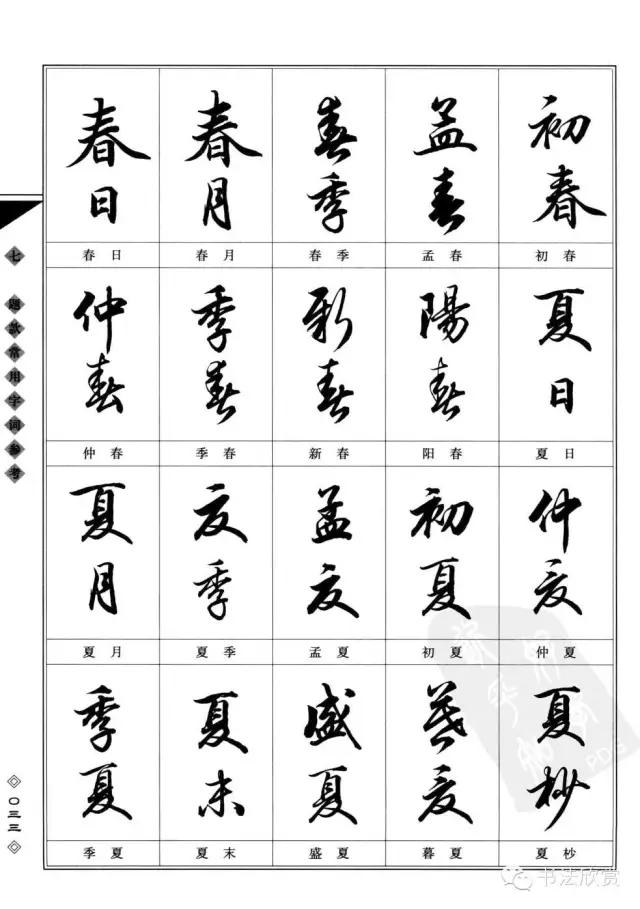 春日 春月 春季 孟春 初春
春日 春月 春季 孟春 初春
仲春 季春 新春 陽春 夏日
仲春 季春 新春 阳春 夏日
夏月 夏季 孟夏 初夏 仲夏
夏月 夏季 孟夏 初夏 仲夏
季夏 夏末 盛夏 暮夏 夏杪
季夏 夏末 盛夏 暮夏 夏杪
七 题款常用字词参考
〇三三
PDG
书法欣赏